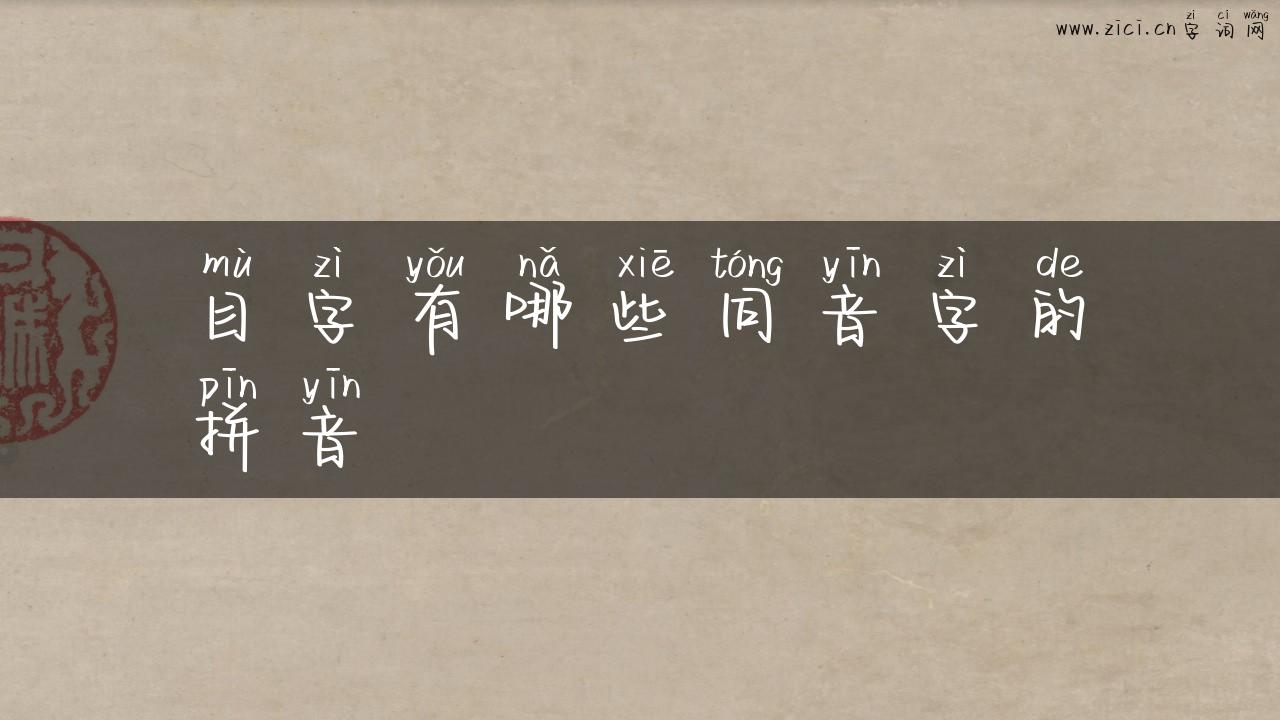 zì cí wǎng
www.zici.cn 字词网
mù zì yǒu nǎ xiē tóng yīn zì de
目字有哪些同音字的
pīn yīn
拼音